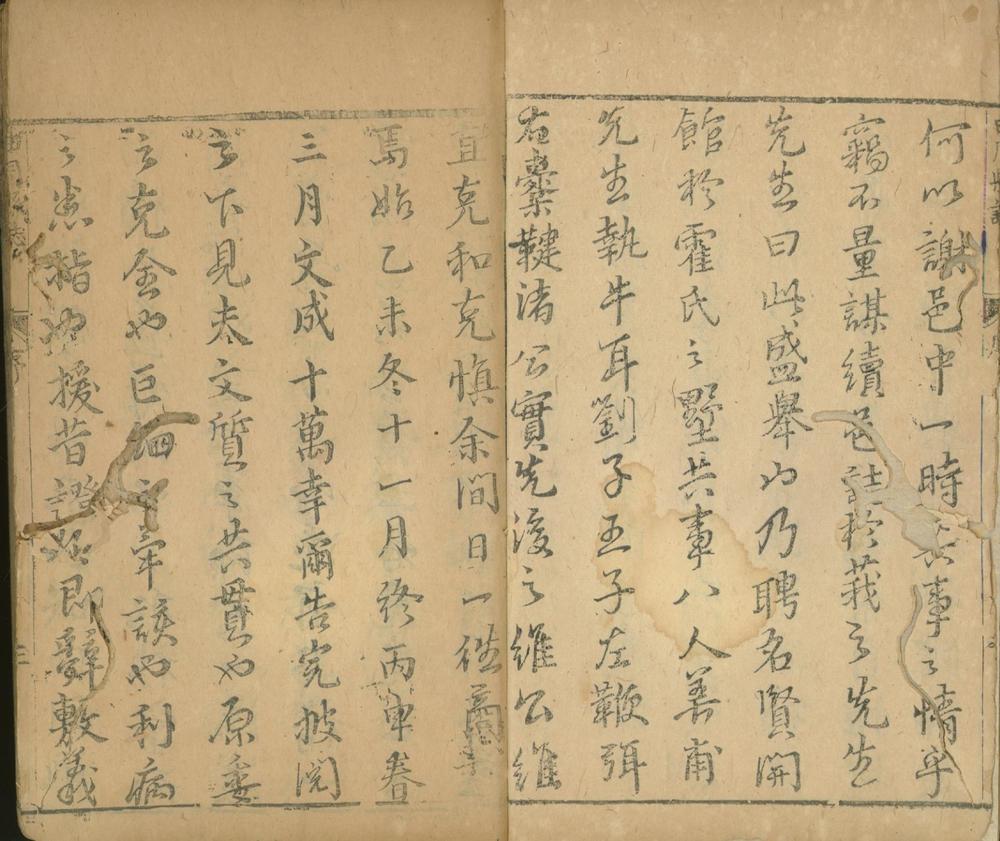 何以謝邑中一時共事之情乎
竊不量謀續邑誌於莪云先生
先生曰此盛舉也乃聘名賢開
館於霍氏之墅共事八人著甫
先生執牛耳劉子王子左鞭弭
右櫜鞬渚公實先後之維公維
宜克和克慎余間日一徃商
焉始乙未冬十一月終丙申春
三月文成十萬幸爾告完披閱
云下見夫文質之共貫也原委
之克全也巨細之牢該也利病
之悉指也援昔證今即辭敷義